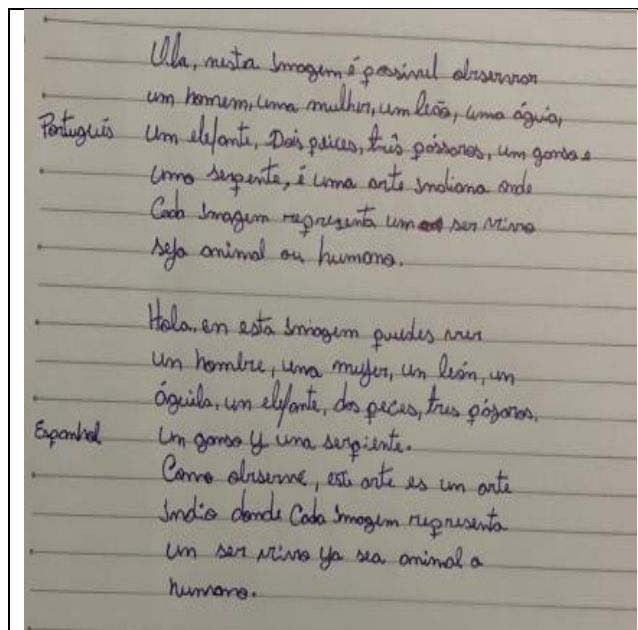 Olá, nesta Imagem é possível observar
um homem, uma mulher, um leão, uma águia,
Português um elefante, Dois peices, três pássaros, um ganso e
uma serpente, é uma arte Indiana onde
Cada Imagem representa um ser vivo
seja animal ou humano.
Hola, en esta Imagem puedes ver
un hombre, una mujer, un león, un
águila, un elefante, dos peces, tres pájaros,
Espanhol un ganso y una serpiente.
Como observé, este arte es un arte
Indio donde Cada Imagem representa
un ser vivo ya sea animal o
humano.